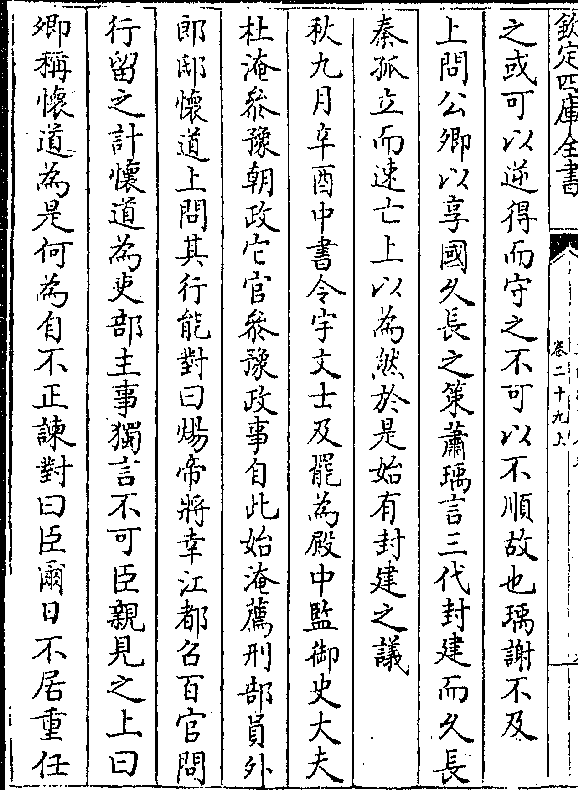 欽定四庫全書
卷二十九上
之或可以逆得而守之不可以不順故也瑀謝不及
上問公卿以享國久長之策蕭瑀言三代封建而久長
秦孤立而速亡上以為然於是始有封建之議
秋九月辛酉中書令宇文士及罷為殿中監御史大夫
杜淹叅豫朝政它官叅豫政事自此始淹薦刑部員外
郎邸懷道上問其行能對曰煬帝將幸江都召百官問
行留之計懷道為吏部主事獨言不可臣親見之上曰
卿稱懷道為是何為自不正諫對曰臣爾日不居重任